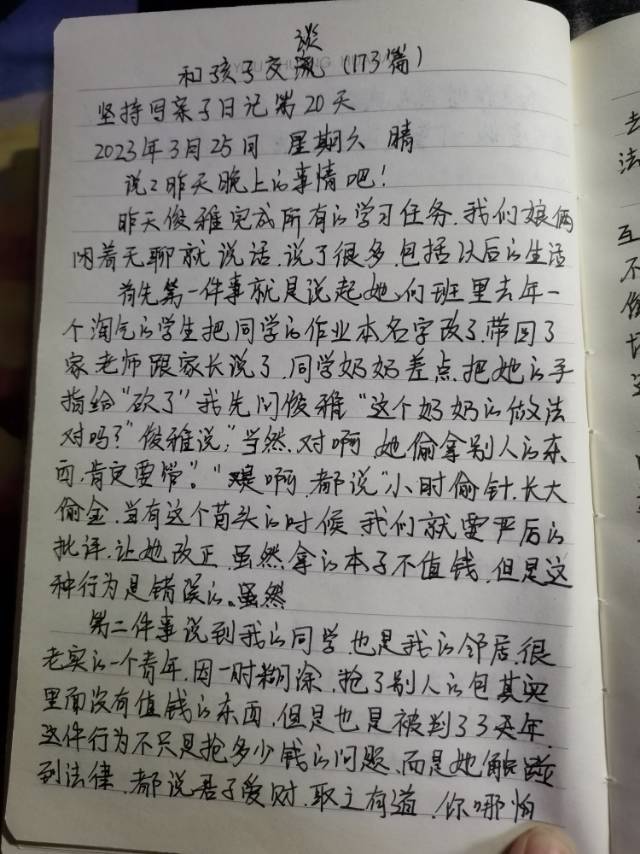 谈
和孩子交流（173篇）
坚持写亲子日记第20天
2023年3月25日 星期六 晴
说说昨天晚上的事情吧！
昨天俊雅完成所有的学习任务.我们娘俩
闲着无聊就说话.说了很多.包括以后的生活
首先第一件事就是说起她们班里去年一
个淘气的学生把同学的作业本名字改了.带回了
家.老师跟家长说了.同学奶奶差点把她的手
指给"砍了"我先问俊雅"这个奶奶的做法
对吗？"俊雅说,"当然.对啊 她偷拿别人的东
西,肯定要管"."是啊.都说"小时偷针.长大
偷金.当有这个苗头的时候.我们就要严厉的
批评.让她改正.虽然拿的本子不值钱.但是这
种行为是错误的。虽然
第二件事说到我的同学也是我的邻居.很
老实的一个青年.因一时糊涂.抢了别人的包其实
里面没有值钱的东西.但是也是被判了3年.
这件行为不只是抢多少钱的问题.而是她触碰
到法律.都说君子爱财.取之有道.你哪怕
去
法
互
不